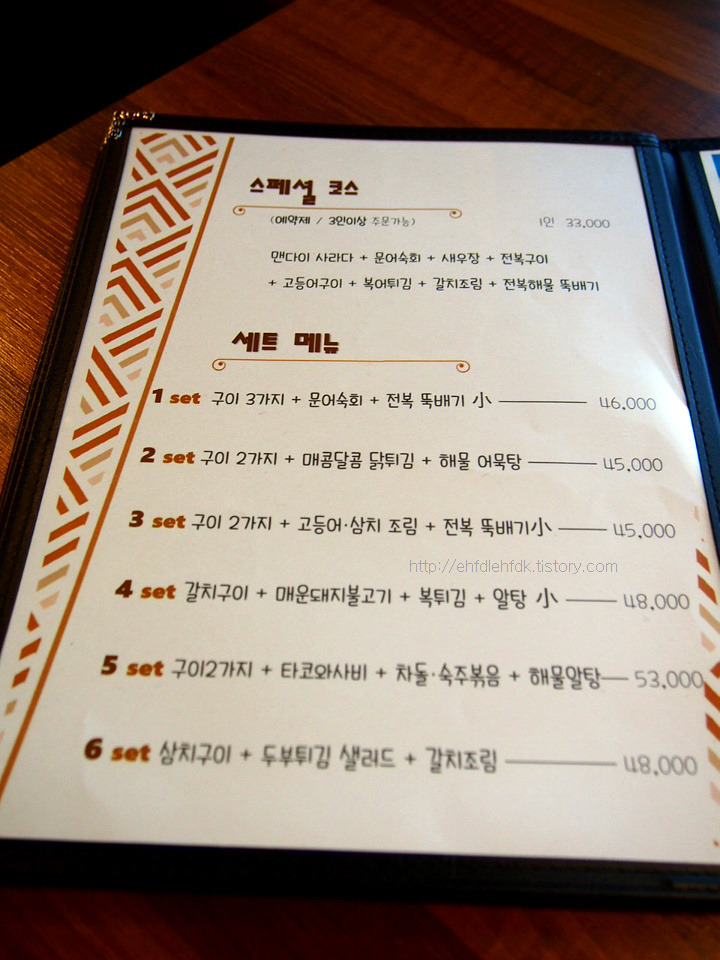 스페셜 코스
(예약제 / 3인이상 주문가능) 1인 33,000
맨다이 사라다 + 문어숙회 + 새우장 + 전복구이
+ 고등어구이 + 복어튀김 + 갈치조림 + 전복해물 뚝배기
세트 메뉴
1 set 구이 3가지 + 문어숙회 + 전복 뚝배기 小 46,000
2 set 구이 2가지 + 매콤달콤 닭튀김 + 해물 어묵탕 45,000
3 set 구이 2가지 + 고등어·삼치 조림 + 전복 뚝배기小 45,000
http://ehfdlehfdk.tistory.com
4 set 갈치구이 + 매운돼지불고기 + 복튀김 + 알탕 小 48,000
5 set 구이2가지 + 타코와사비 + 차돌·숙주볶음 + 해물알탕 53,000
6 set 삼치구이 + 두부튀김 샐러드 + 갈치조림 48,000